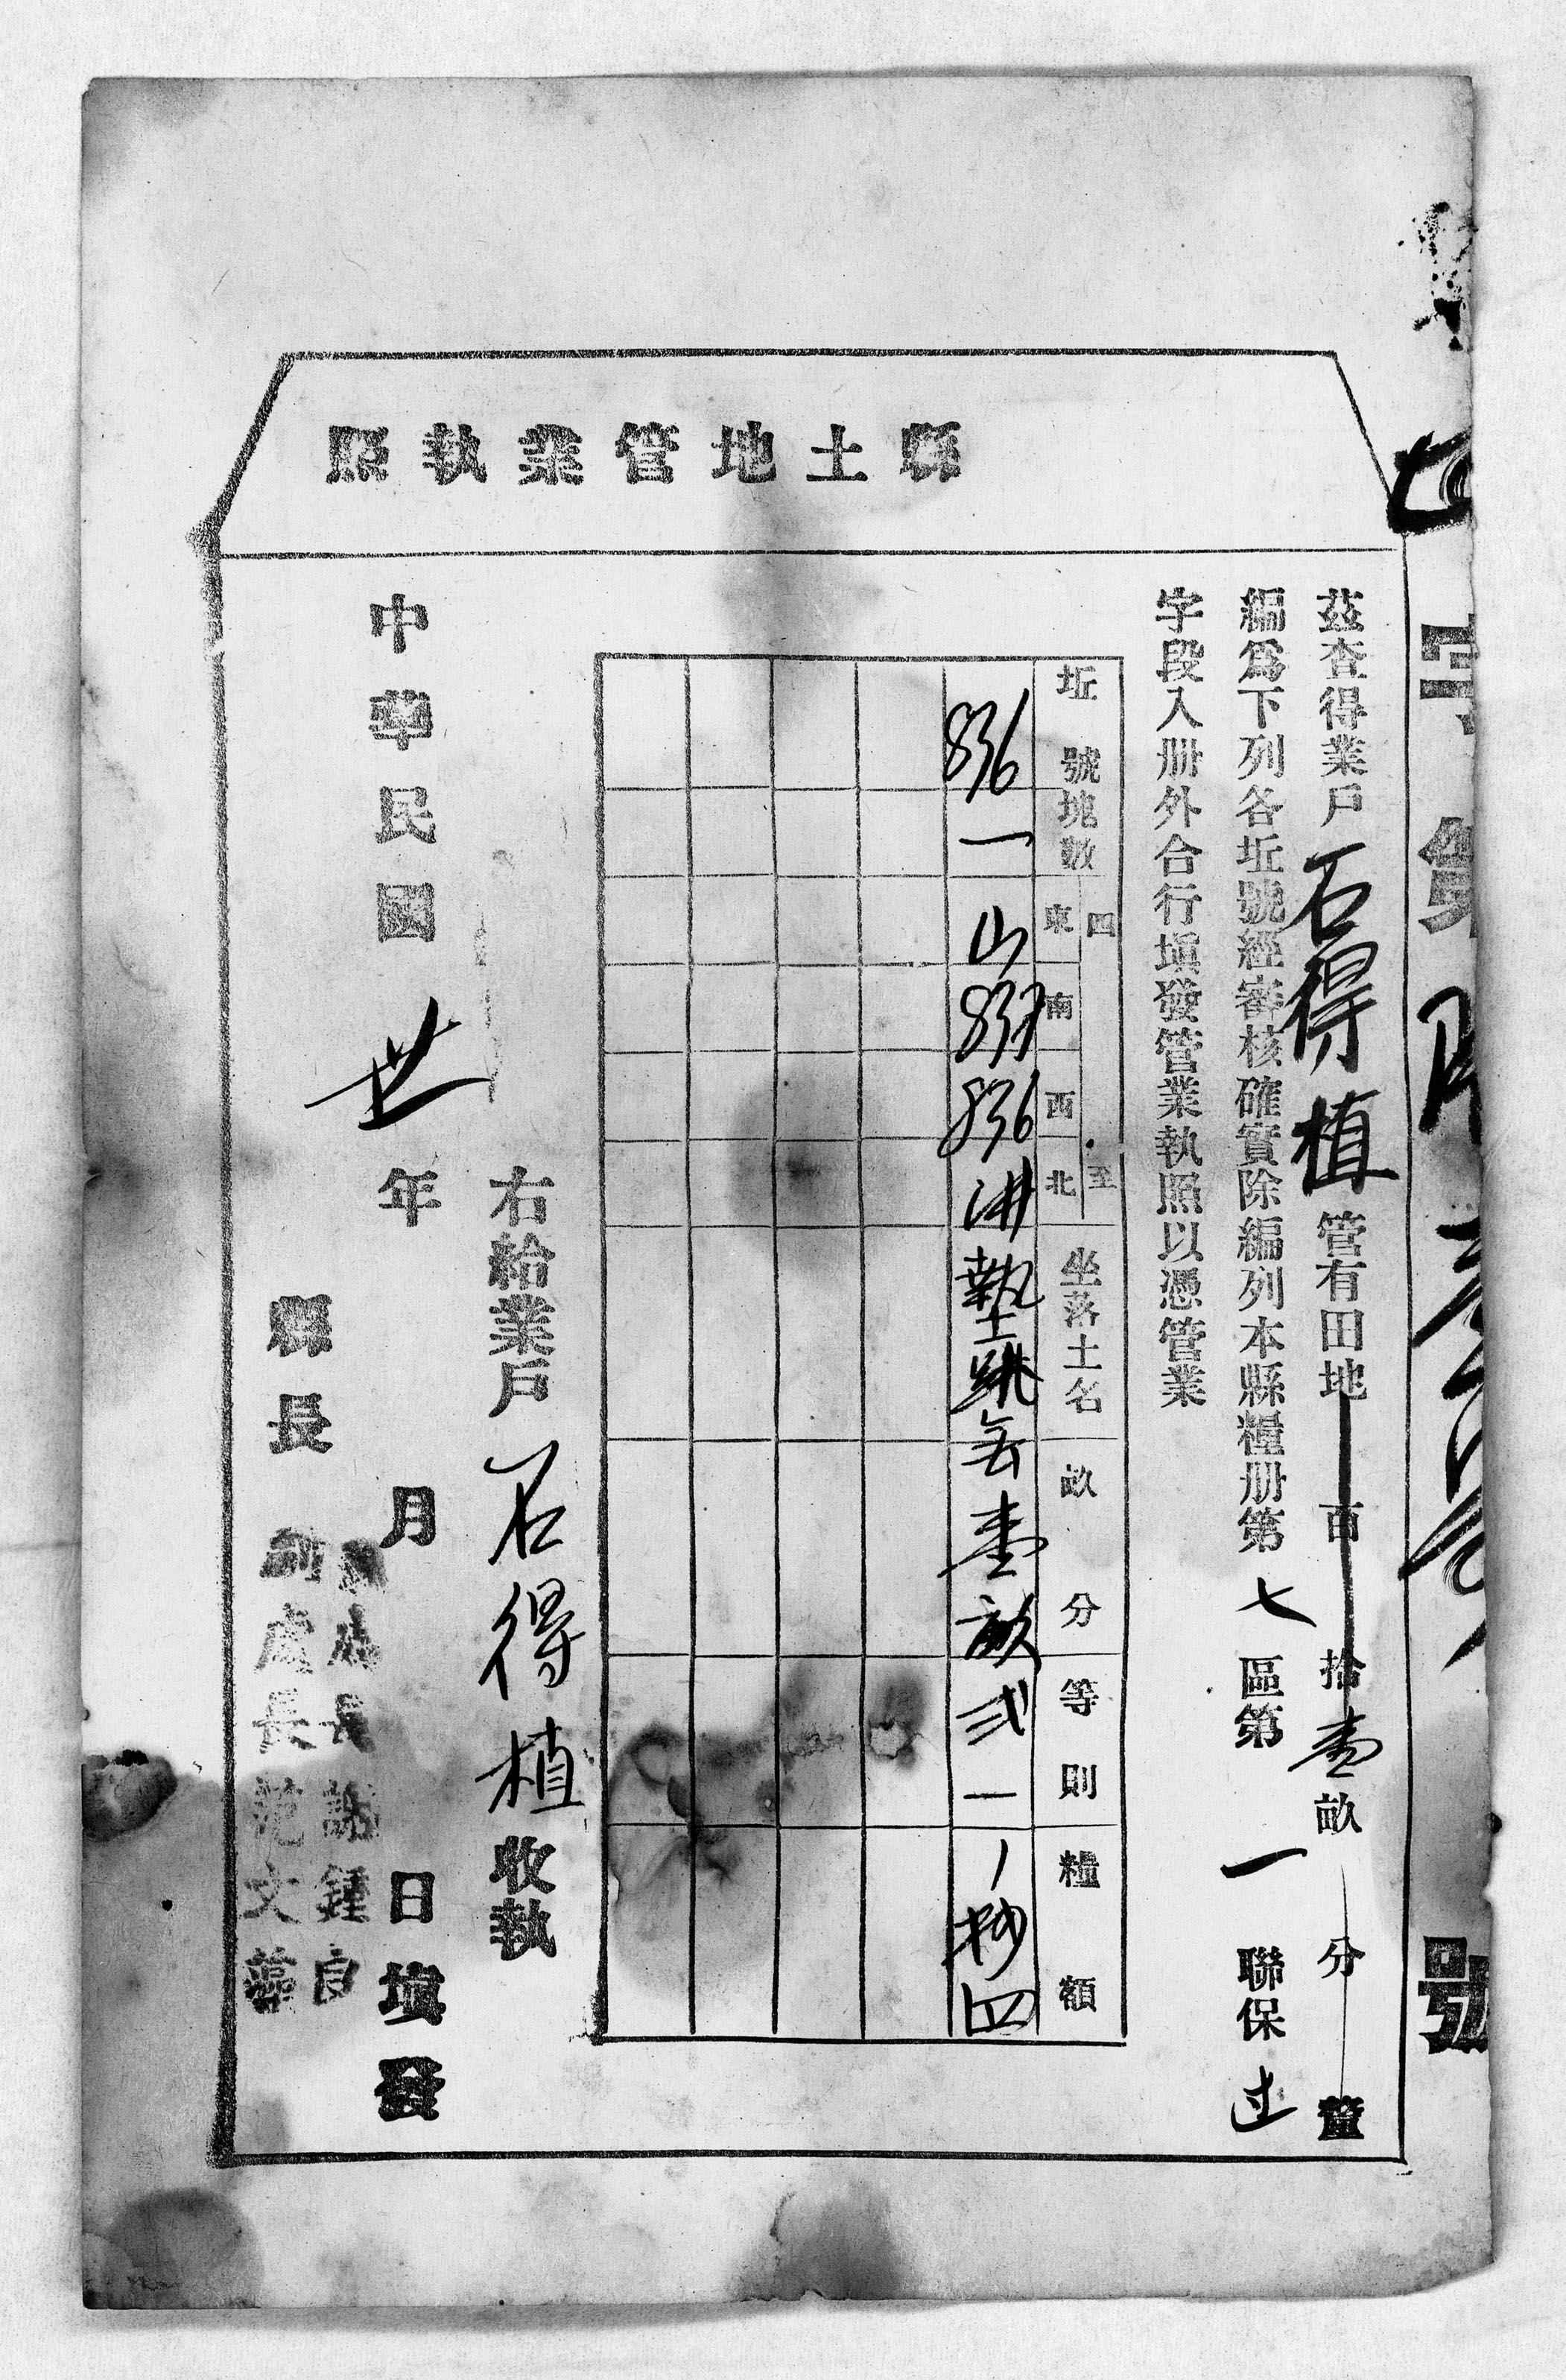 縣土地管業執照
字第 號
茲查得業戶石得植管有田地 百 拾壹畝 分 釐
編爲下列各坵號經審核確實除編列本縣糧册第七區第一聯保
字段入册外合行塡發管業執照以憑管業
坵號 塊數 四至 東 南 西 北 坐落土名 畝分 等則 糧額
836 一 山 837 836 壹畝 弍一 四
右給業戶石得植收執
中華民國卅年 月 日塡發
縣長
副處長范文藻
處長謝鍾良